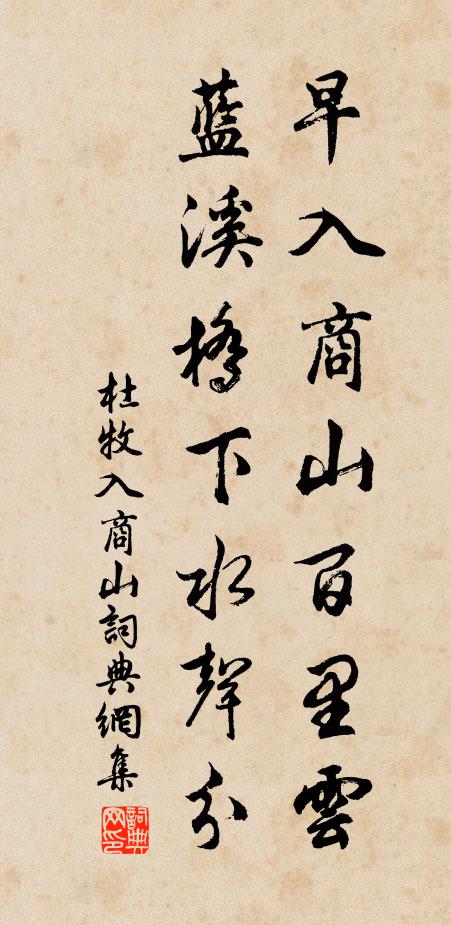 早入商山百里雲
藍溪橋下水聲分
杜牧入商山詞典網集
詞典網印